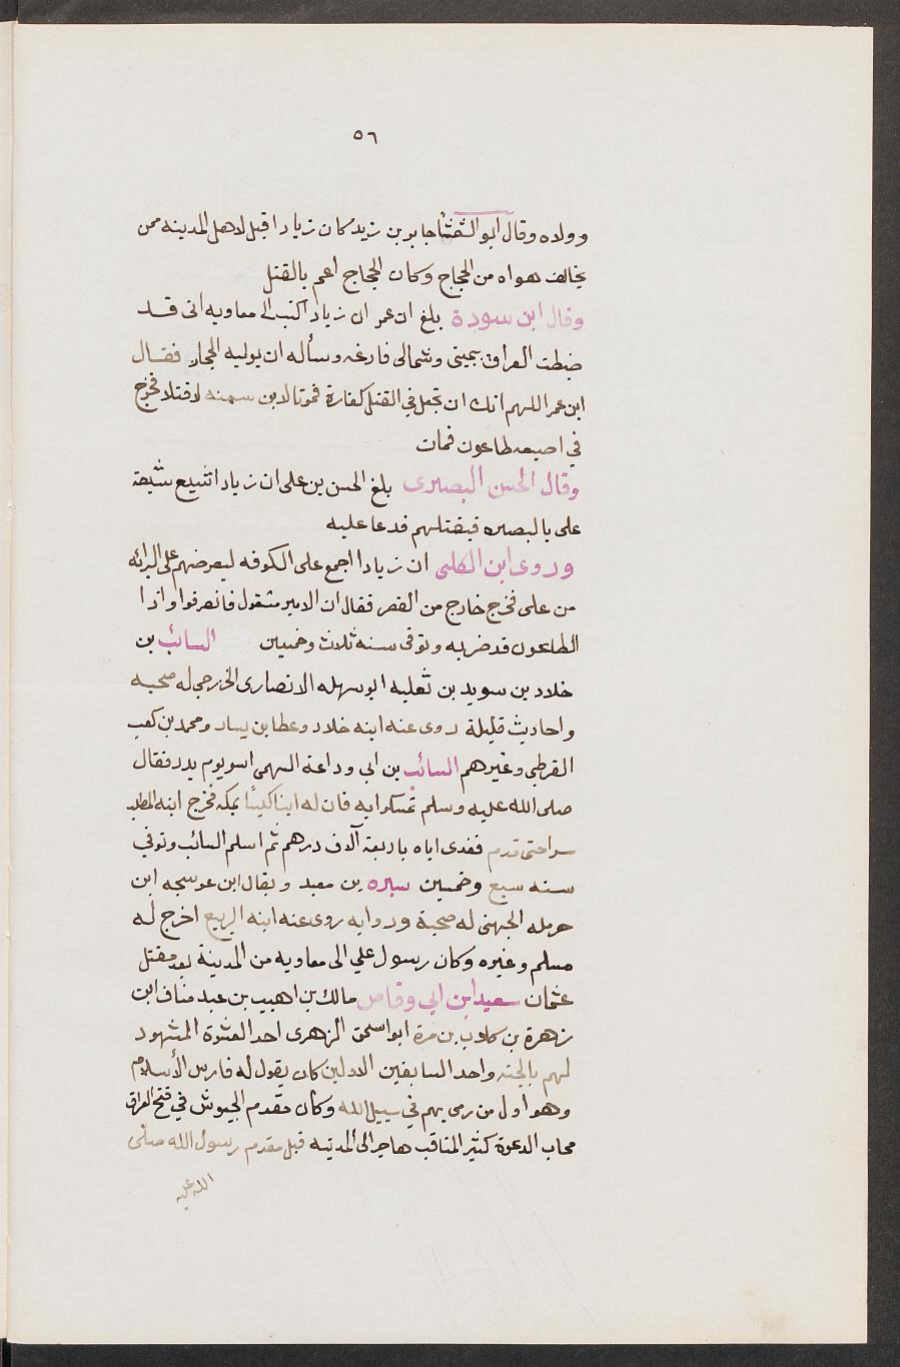 ٥٦
وولاه وقال ابو الشعثا جابر بن زيد كان زيادا اقبل لاهل المدينه ممن
يخالف هواه من الحجاج وكان الحجاج اعم بالقتل
وقال ابن سودة بلغ ابن عمر ان زيادا كتب الى معاويه انى قد
ضبطت العراق بيمينى وشمالى فارغه وسأله ان يوليه الحجاز فقال
ابن عمر اللهم انك ان تجعل في القتل كفارة فموتا لابن سمنه لا قتلا فخرج
في اصبعه طاعون فمات
وقال الحسن البصرى بلغ الحسن بن على ان زيادا تتبع شيعة
على بالبصره فيقتلهم فدعا عليه
وروى ابن الكلبى ان زيادا اجمع على الكوفه ليعرضهم على البرائه
من على فخرج خارج من القصر فقال ان الامير مشغول فانصرفوا واذا
الطاعون قد ضربه وتوفى سنه ثلاث وخمسين السائب بن
خلاد بن سويد بن ثعلبه ابو سهله الانصارى الخزرجى له صحبه
واحاديث قليلة روى عنه ابنه خلاد وعطا بن يسار ومحمد بن كعب
القرظى وغيرهم السائب بن ابي وداعة السهمى اسر يوم بدر فقال
صلى الله عليه وسلم تمسكوا به فان له ابنا كيسا بمكه فخرج ابنه المطلب
سرا حتى قدم ففدى اباه باربعة آلاف درهم ثم اسلم السائب وتوفي
سنه سبع وخمسين سبره بن معبد ويقال ابن عوسجه ابن
حرمله الجهنى له صحبة وروايه روى عنه ابنه الربيع اخرج له
مسلم وغيره وكان رسول علي الى معاويه من المدينة بعد مقتل
عثمان سعيد ابن ابي وقاص مالك بن اهيب بن عبد مناف ابن
زهرة بن كلاب بن مرة ابو اسحق الزهرى احد العشرة المشهود
لهم بالجنه واحد السابقين الاولين كان يقول له فارس الأسلام
وهو اول من رمى بهم في سبيل الله وكان مقدم الجيوش في فتح العراق
مجاب الدعوة كثير المناقب هاجر الى المدينه قبل مقدم رسول الله صلى
الله عليه